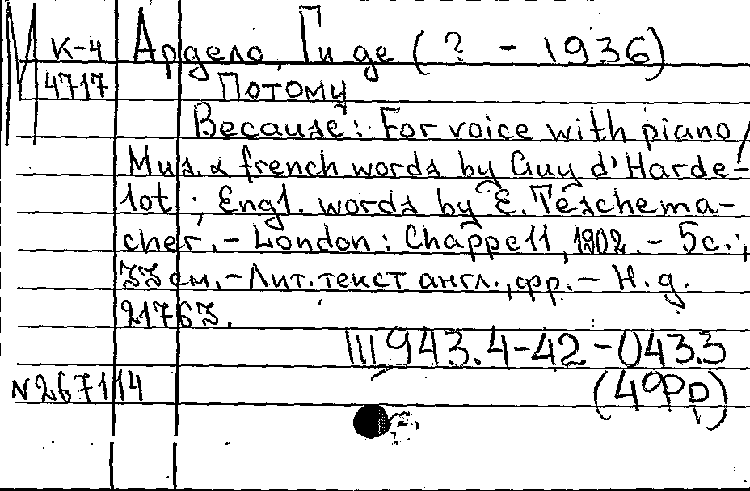 М К-4 Ардело, Ги де (? - 1936)
4717 Потому
Because: For voice with piano /
Mus. & french words by Guy d'Harde-
lot ; Engl. words by E. Teschema-
cher. - London : Chappell, 1902. - 5 с.;
33 см. - Лит. текст англ., фр. - Н. д.
21763.
Ш 943.4-42-043.3
N 267114 (4Фр)